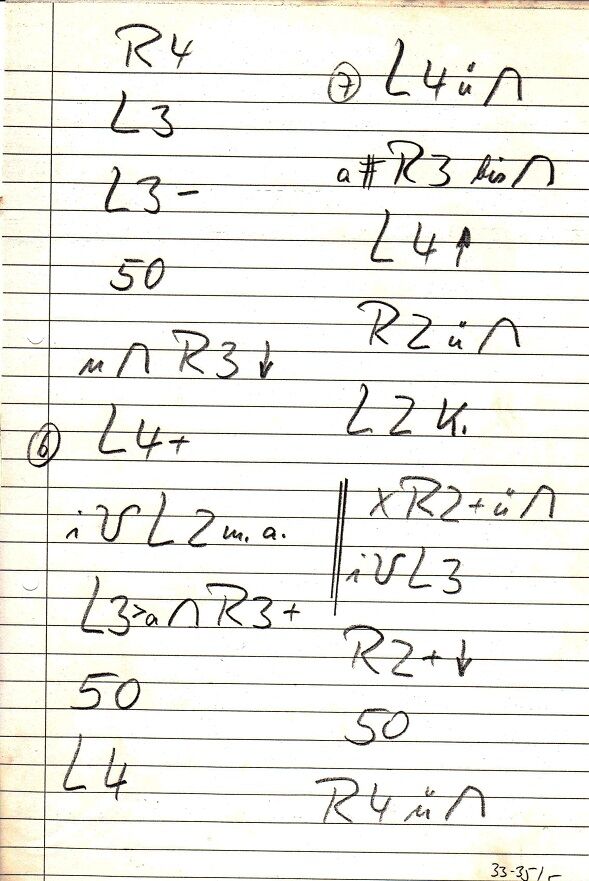 R4
L3
L3-
50
u ∩ R3 ↓
⑥ L4+
i V L2 m. a.
L3 > a ∩ R3+
50
L4
⑦ L4 ü ∩
a # R3 bis ∩
L4 ↑
R2 ü ∩
L2 K.
‖ x R2 + ü ∩
i V L3
R2 + ↓
50
R4 ü ∩
33-35/